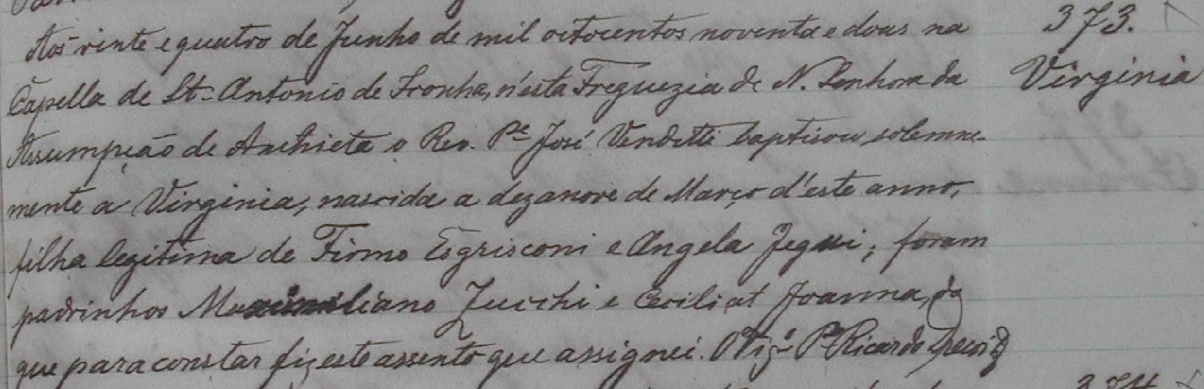 Aos vinte e quatro de Junho de mil oitocentos noventa e doas na
373.
Capella de St. Antonio de Fronha, n'esta Freguezia de N. Senhora da
Virginia
Assumpção de Anchieta o Rev. Pe José Venditti baptisou solemne-
mente a Virginia, nascida a dezanove de Março d'este anno,
filha legitima de Firmo Esgrisconi e Angela ; foram
padrinhos Maximiliano Zucchi e Joanna,
que para constar fiz este assento que assignei. O Vigº Pe Ricardo
374